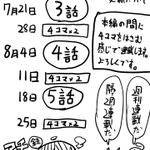 7月21日 3話
28日 4コマ×2
8月4日 4話
11日 4コマ×2
18日 5話
25日 4コマ×2
本編の間に
4コマをはさむ
感じで連載します。
よろしくです。
週刊連載だ
隔週連載だ